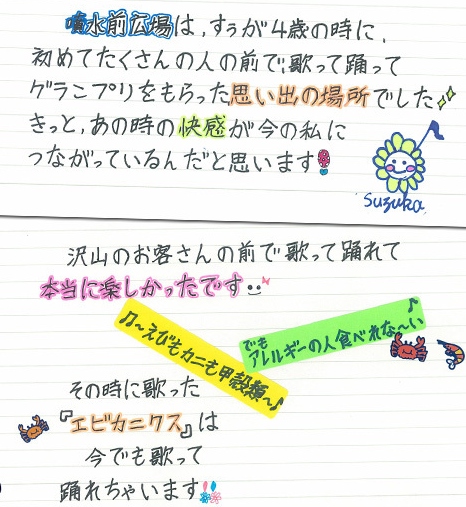 噴水前広場は、すぅが4歳の時に、
初めてたくさんの人の前で、歌って踊って
グランプリをもらった思い出の場所でした
きっと、あの時の快感が今の私に
つながっているんだと思います
Suzuka
沢山のお客さんの前で歌って踊れて
本当に楽しかったです
♫～えびもカニも甲殻類～♪
でも
アレルギーの人食べれな～い♪
その時に歌った
『エビカニクス』は
今でも歌って
踊れちゃいます